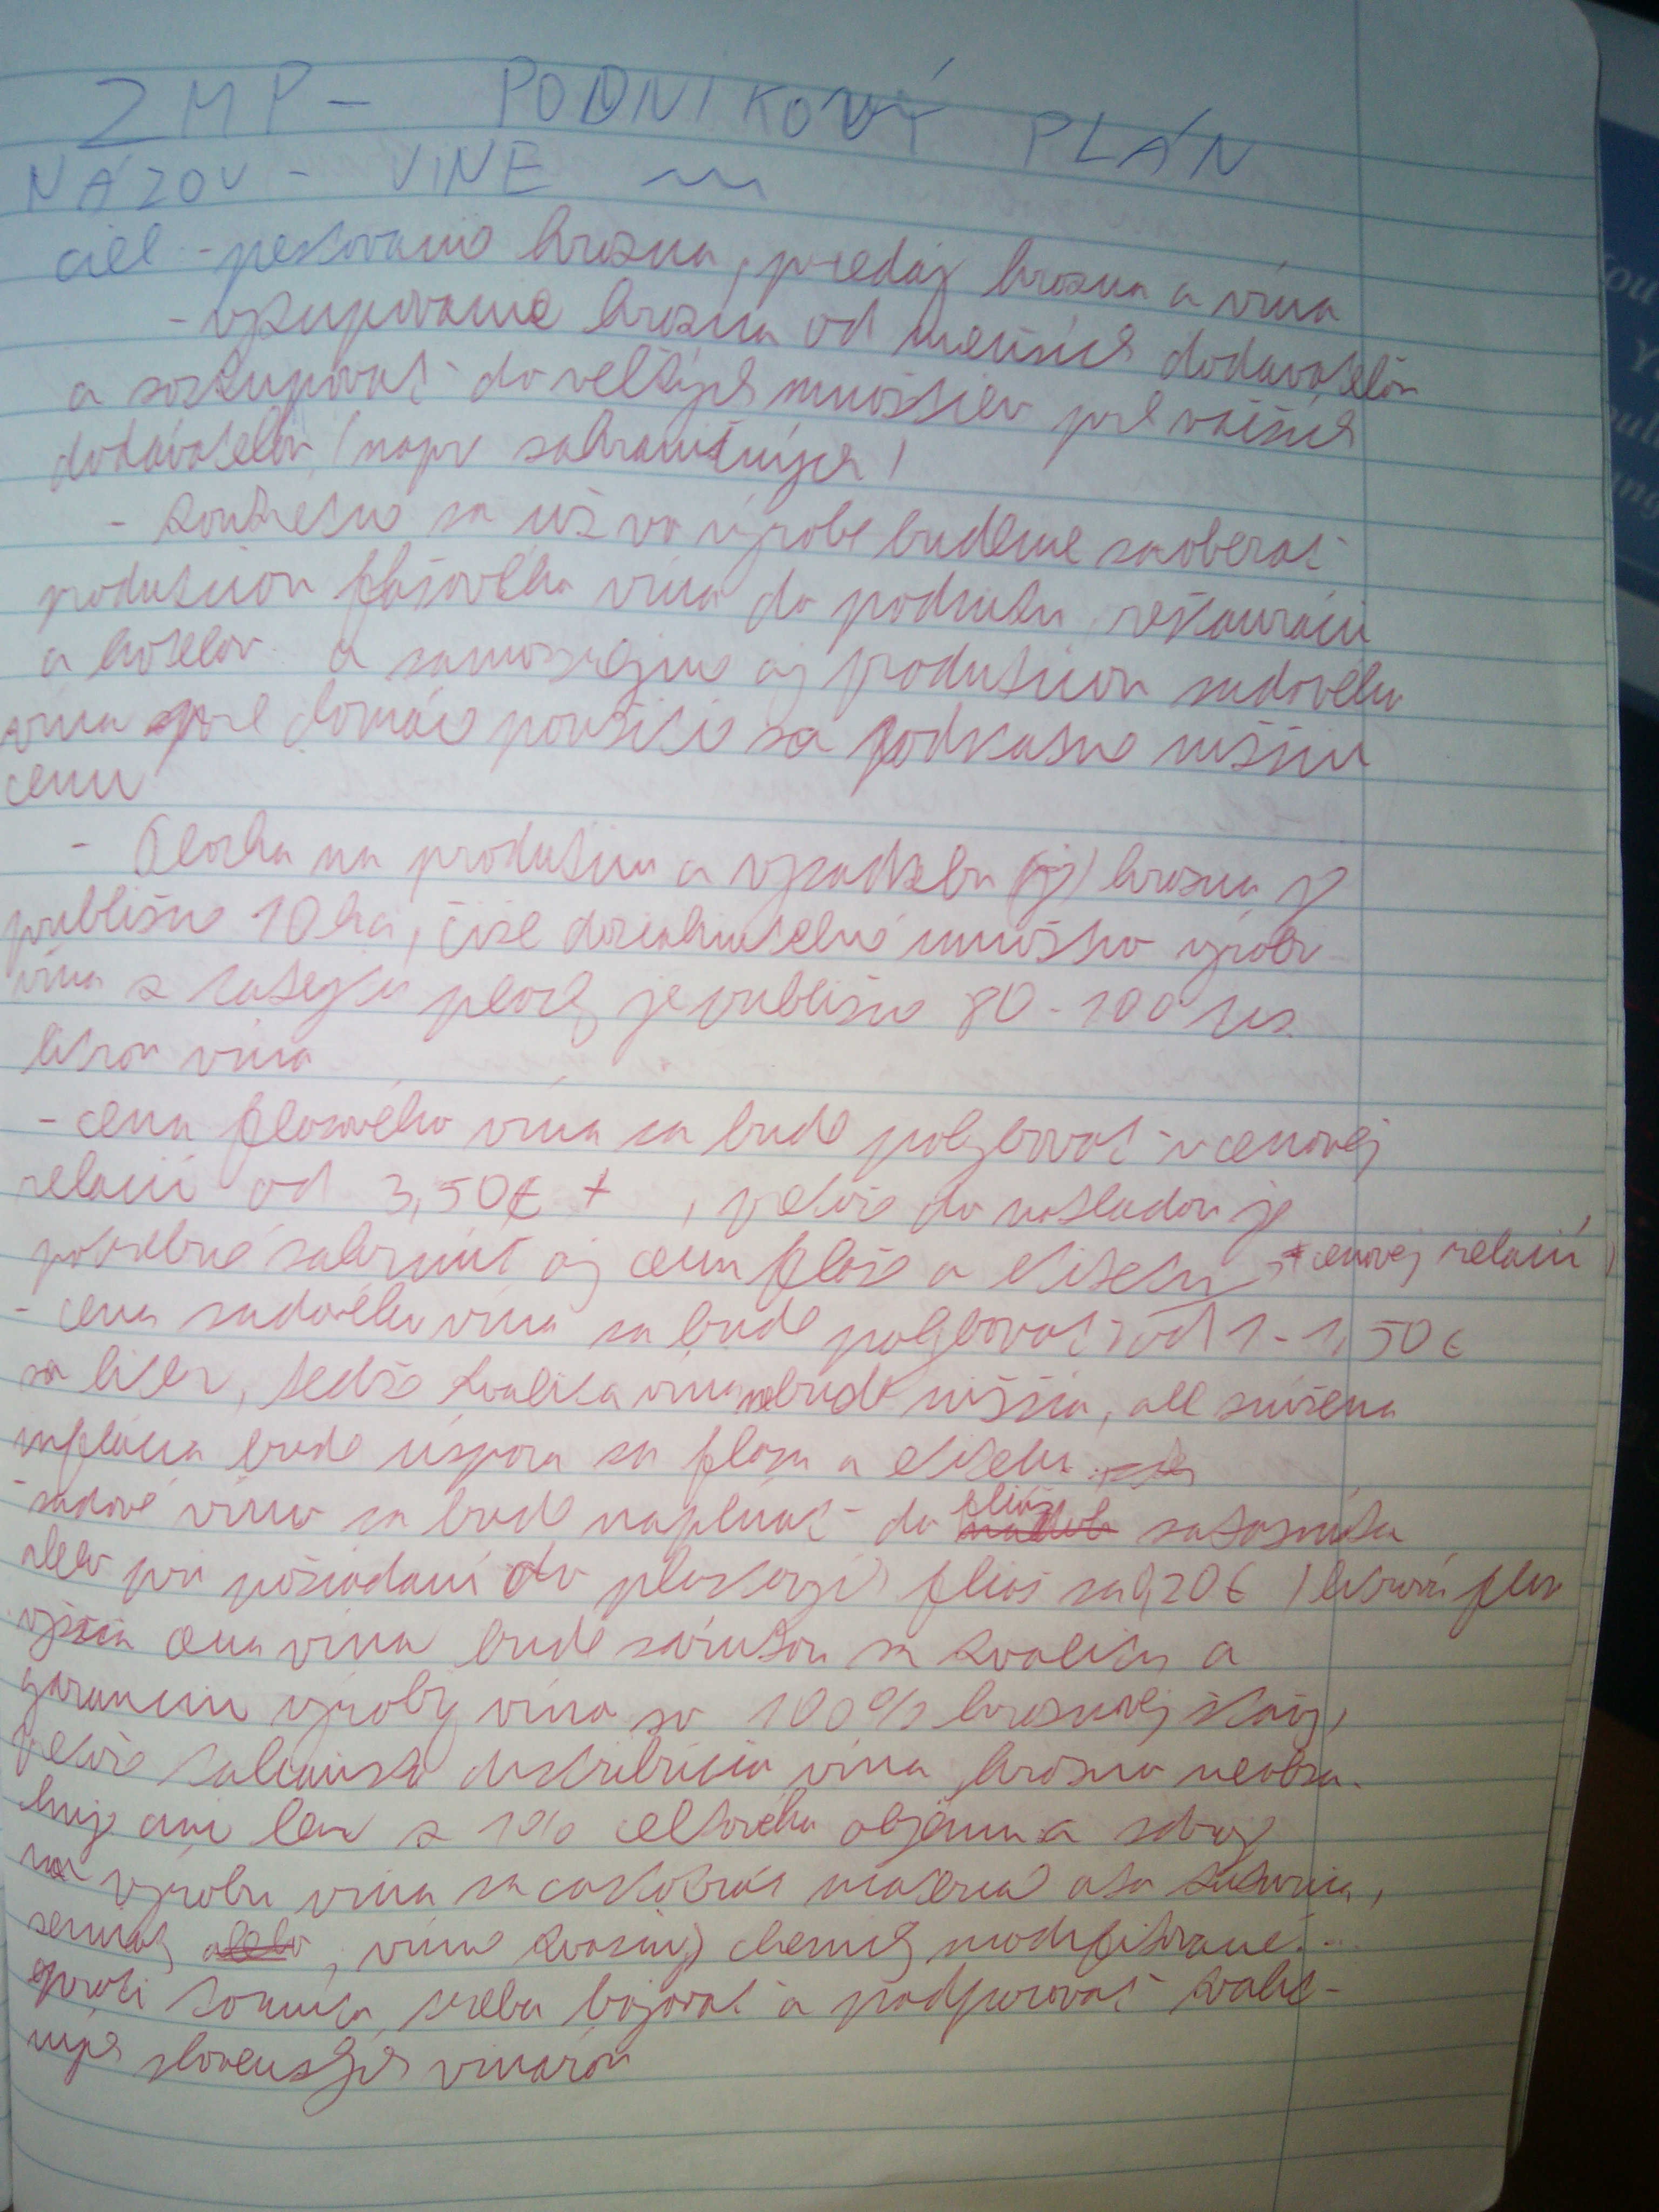 ZMP - PODNIKOVÝ PLÁN
NÁZOV - VINE
cieľ - pestovanie hrozna, predaj hrozna a vína
- vykupovanie hrozna od menších dodávateľov
a zoskupovať do veľkých množstiev pre väčších
dodávateľov (napr zahraničných)
- konkrétne sa už vo výrobe budeme zaoberať
produkciou fľašového vína do podniku, reštaurácii
a hotelov a samozrejme aj produkciou sudového
vína pre domáce použitie za podstatne nižšiu
cenu
- Plocha na produkciu a výsadzbu hrozna je
približne 10 ha, čiže dosiahnuteľné množstvo výroby
vína z takejto plochy je približne 80 - 100 tis
litrov vína
- cena fľašového vína sa bude pohybovať v cenovej
relacii od 3,50€ + , pretože do nákladov je
potrebné zahrnúť aj cenu fľaše a etikety
- cena sudového vína sa bude pohybovať v cenovej relacii od 1 - 1,50€
za liter, kedže kvalita vína nebude nižšia, ale znížena
inflácia bude úspora za fľašu a etiketu
- sudové víno sa bude naplňať do fliaš zákazníka
alebo pri požiadaní do plastových fliaš za 0,20€ (litrová fľaša
vyššia cena vína bude zárukou za kvalitu a
garanciu výroby vína zo 100% hroznovej šťavy,
pretože talianska distribúcia vína hrozno neobsa-
huje ani len z 1% celkového objemu a zdroj
na výrobu vína sa častokrát materiál ako kukurica,
zemiaky, víno kvasinky chemicky modifikované...
proti tomuto treba bojovať a podporovať kvalit-
ných slovenských vinárov